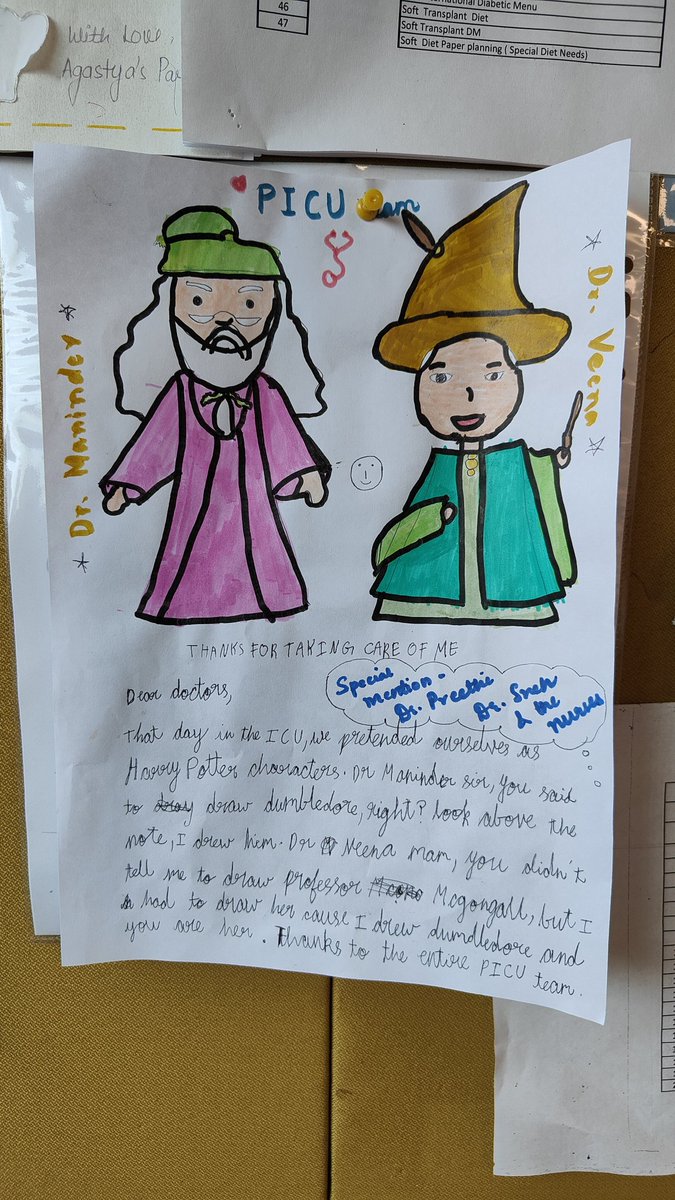 With Love,
Agastya's
46
47
Diabetic Menu
Soft Transplant Diet
Soft Transplant DM
Soft Diet Paper planning ( Special Diet Needs)
PICU
Dr. Maninder
Dr. Veena
THANKS FOR TAKING CARE OF ME
Special
mention -
Dr. Preethie
Dr. Sneh
& the
nurses
Dear doctors,
That day in the ICU, we pretended ourselves as
Harry Potter characters. Dr Maninder sir, you said
to draw dumbledore, right? look above the
note, I drew him. Dr Veena mam, you didn't
tell me to draw professor Mcgongall, but I
had to draw her cause I drew dumdledore and
you are her. Thanks to the entire PICU team.